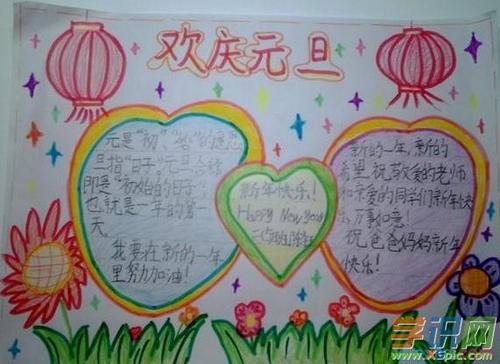 欢庆元旦
元是"初""始"的意思
旦指"日子"。元旦合称
即是"初始的日子"
也就是一年的第一
天。
我要在新的一年
里努力加油!
新年快乐!
Happy New Year
新的一年,新的
希望,祝敬爱的老师
和亲爱的同学们新年快
乐,万事如意!
祝爸爸妈妈新年
快乐!
学识网
www.XSpic.com